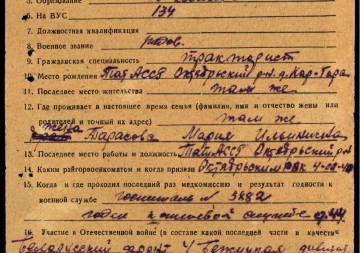 5. Образование
6. На ВУС 134
7. Должностная квалификация
8. Военное звание рядов.
9. Гражданская специальность тракторист
10. Место рождения Тат АССР Октябрьский р-н д. Кар-Гора
11. Последнее место жительства там же
12. Где проживает в настоящее время семья (фамилия, имя и отчество жены или
родителей и точный их адрес) там же
жена Тарасова Мария Ильинична
13. Последнее место работы и должность Тат АССР Октябрьский р-н
14. Каким райгорвоенкоматом и когда призван Октябрьским РВК
15. Когда и где проходил последний раз медкомиссию и результат годности к
военной службе госпиталь № 3682
годен к строевой службе
16. Участие в Отечественной войне (в составе какой последней части и в качестве
Белорусский фронт 4 дивизия